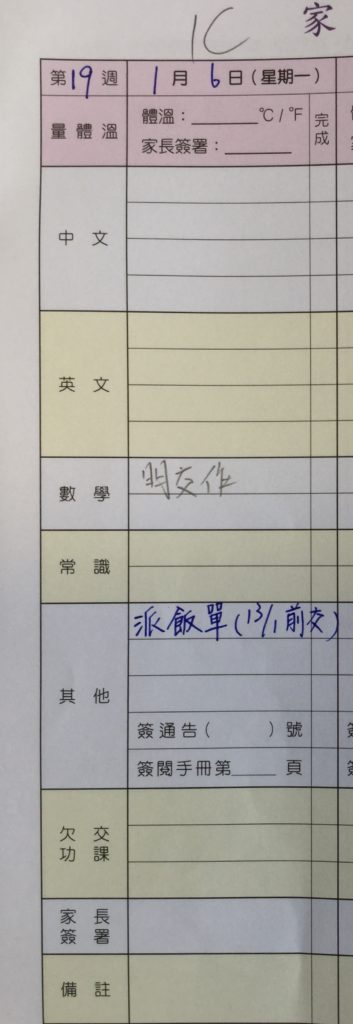 1C 家
第19週 1月6日(星期一)
量體溫 體溫：______°C/°F 完成
家長簽署：______
中文
英文
數學 明交作
常識
派飯單(13/1前交)
其他
簽通告( )號
簽閱手冊第____頁
欠交
功課
家長
簽署
備註